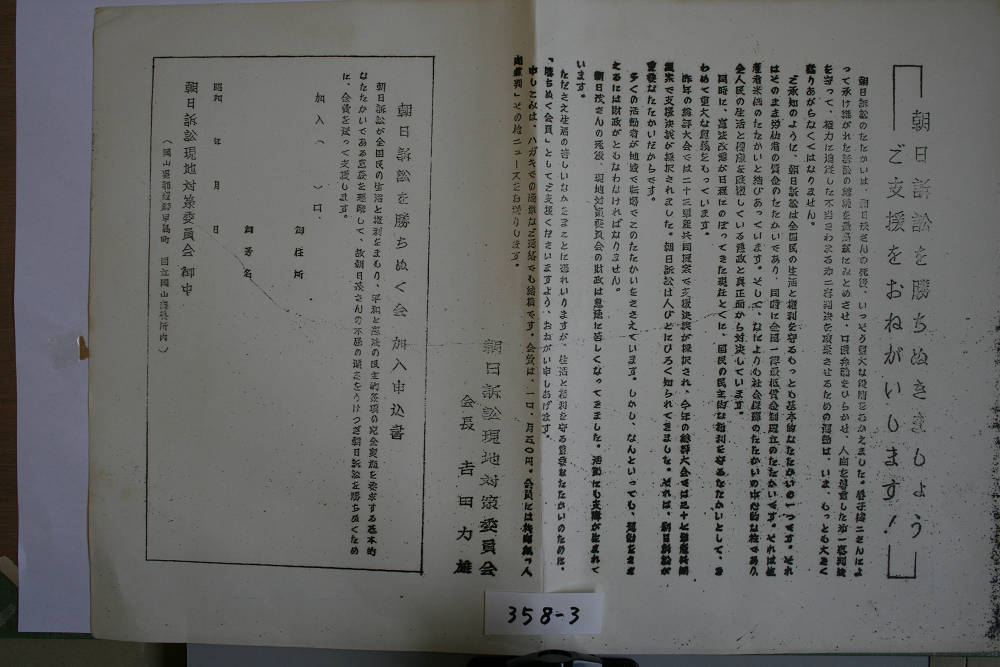 朝日訴訟を勝ちぬきましょう
ご支援をおねがいします！
朝日訴訟のたたかいは、朝日茂さんの死後、いっそう重大な段階をむかえました。養子健二さんによ
って承け継がれた訴訟の継続を最高裁にみとめさせ、口頭弁論をひらかせ、人間を尊重した第一審判決
を守って、権力に追従した不当きわまる第二審判決を破棄させるための運動は、いま、もっとも大きく
盛りあがらなくてはなりません。
ご承知のように、朝日訴訟は全国民の生活と権利を守るもっとも基本的なたたかいの一つです。それ
はそのまま労働者の賃金のたたかいであり、同時に全国一律最低賃金制確立のたたかいです。それは生
産者米価のたたかいと結びあっています。そして、なによりも社会保障のたたかいの中心的な柱であり
全人民の生活と権利を
している悪政と真正面から対決しています。
同時に、憲法改悪が日程にのぼってきた現在とくに、国民の民主的な権利を守るたたかいとして、き
わめて重大な意義をもっています。
昨年の総評大会では二十三単産共同提案で支援決議が採択され、今年の総評大会では三十七単産共同
提案で支援決議が採択されました。朝日訴訟は人びとにひろく知られてきました。それは、朝日訴訟が
重要なたたかいだからです。
多くの活動者が地域で職場でこのたたかいをささえています。しかし、なんといっても、運動をささ
えるには財政がともなわなければなりません。
朝日茂さんの死後、現地対策委員会の財政は急速に苦しくなってきました。活動にも支障が生まれて
います。
たださえ生活の苦しいなかをまことに恐れいりますが、生活と権利を守る重要なたたかいのために、
「勝ちぬく会員」としてご支援くださいますよう、おねがい申しあげます。
申しこみは、ハガキでの簡単なご連絡でも結構です。会費は、一口、月五〇円。会員には機関紙「人
間裁判」その他ニュースをお送りします。
朝日訴訟現地対策委員会
会長　吉田力雄
朝日訴訟を勝ちぬく会加入申込書
朝日訴訟が全国民の生活と権利をまもり、平和と憲法の民主的条項の完全実施を要求する基本的
なたたかいである意義を理解して、故朝日茂さんの不屈の闘志をうけつぎ朝日訴訟を勝ちぬくため
に、会費を送って支援します。
加入（　　）口、
御住所
御芳名
昭和　年　月　日
朝日訴訟現地対策委員会　御中
（岡山県都窪郡早島町　国立岡山療養所内）
358-3